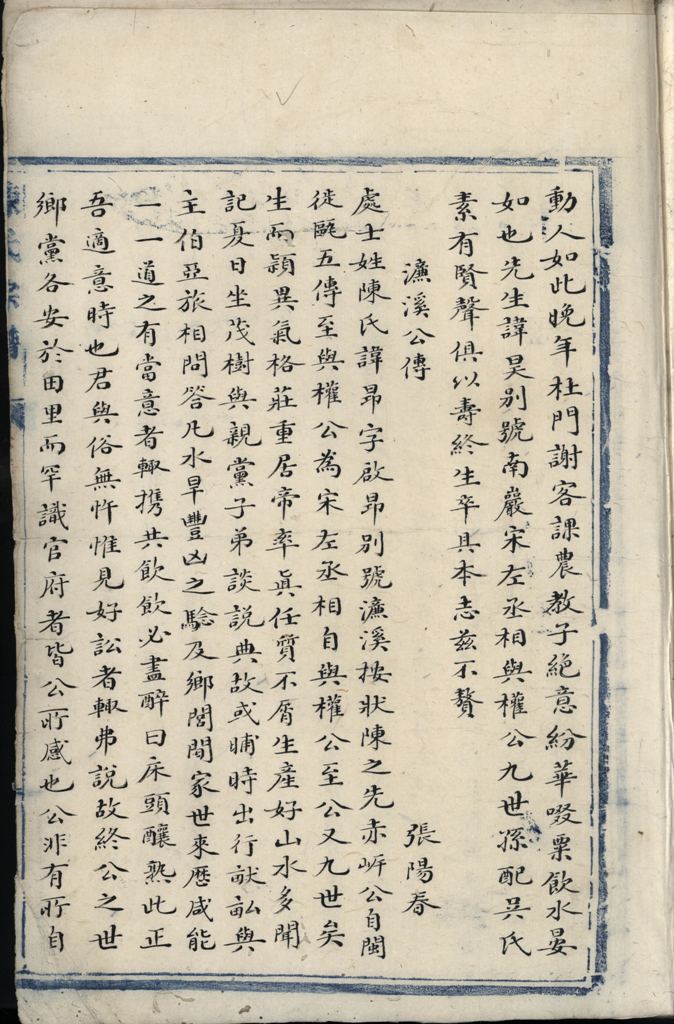 動人如此晚年杜門謝客課農教子絕意紛華啜粟飲水晏
如也先生諱昊別號南嚴宋左丞相與權公九世孫配吳氏
素有賢聲俱以壽終生卒具本志茲不贅
濂溪公傳 張陽春
處士姓陳氏諱昴字啟昴別號濂溪按狀陳之先赤岍公自閩
徙甌五傳至與權公為宋左丞相自與權公至公又九世矣
生而穎異氣格莊重居帝率真任質不屑生產好山水多聞
記夏日坐茂樹與親黨子弟談說典故或晡時出行畎畝與
主伯亞旅相問答凡水旱豐凶之驗及鄉閭間家世來歷咸能
一一道之有當意者輙携共飲飲必盡醉曰床頭釀熟此正
吾適意時也君與俗無忤惟見好訟者輙弗說故終公之世
鄉黨各安於田里而罕識官府者皆公所感也公非有所自